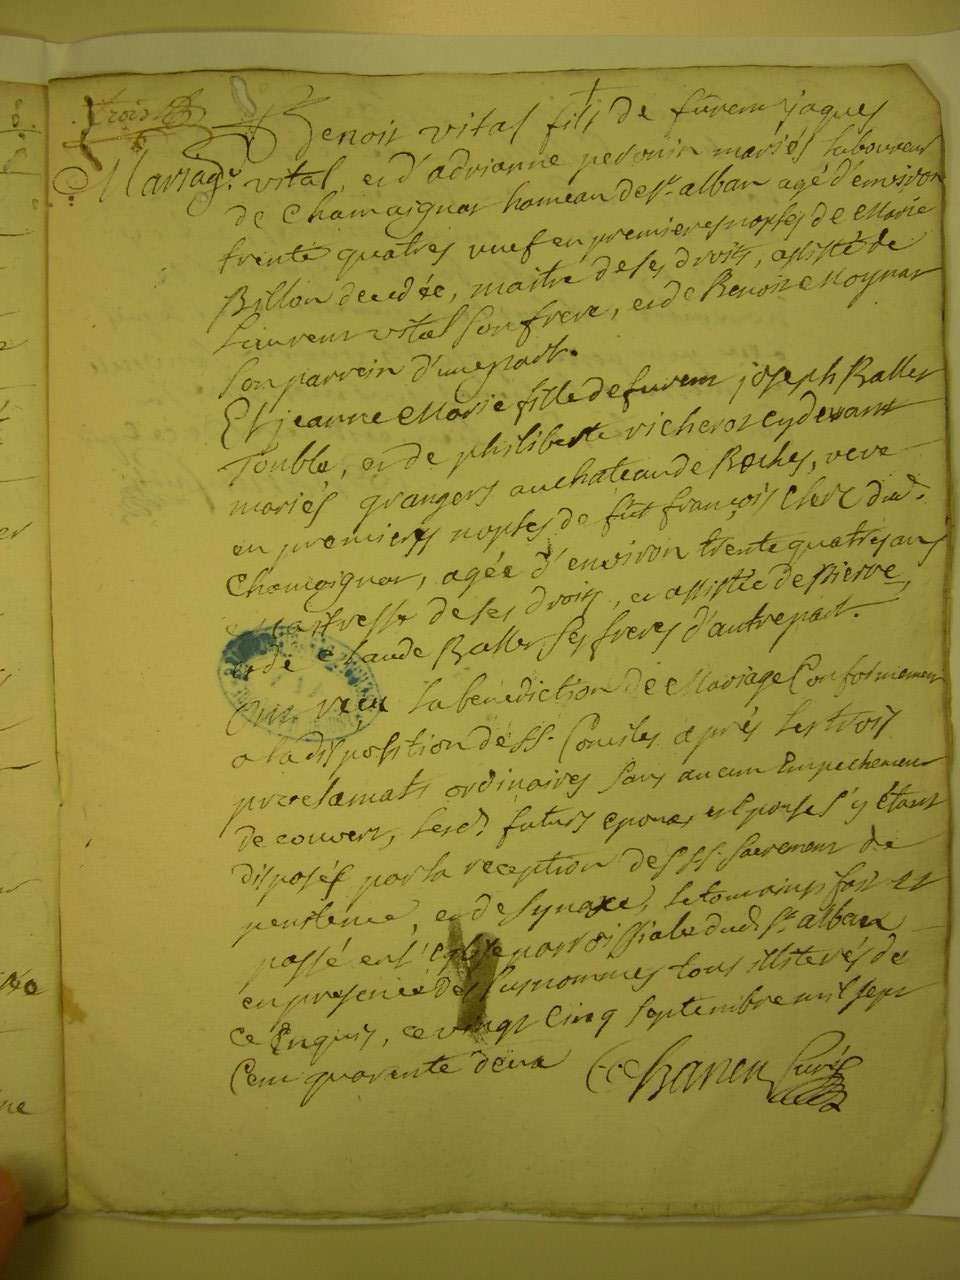 trois
Benoit vital fils de furent jaques
Mariage. vital, et d'adrianne peronin mariés laboureur
de Chamaignar hameau de st. alban agé d'environ
trente quatres veuf en premieres nopses de Marie
Billon decedée, maitre de ses droits, assisté de
Laurent vital son frere, et de Benoit Moynat
son parrein d'une part.
Et jeanne Marie fille de furent joseph Baller
Touble, et de philiberte richerot cy devant
mariés grangers au chateau de Roches, veve
en premieres nopses de fût françois Clerc dud.
Chamaignar, agée d'environ trente quatres ans
maitresse de ses droits, et assistée de Pierre
et de Claude Baller ses freres d'autre part.
Ont reçu la benediction de Mariage Conformement
a la disposition de SS. Conciles après les trois
proclamats ordinaires sans aucun Empechement
decouvert, lesd. futurs epoux, et epouse s'y étant
disposés par la reception des SS. Sacrement de
penitence, et de Synaxe, le tout ainsy fait et
passé en l'Eglise parroissiale dud. St. alban
en presence des susnommes tous illiterés de
ce Enquis, ce vingt Cinq Septembre mil sept
Cent quarante deux Curé